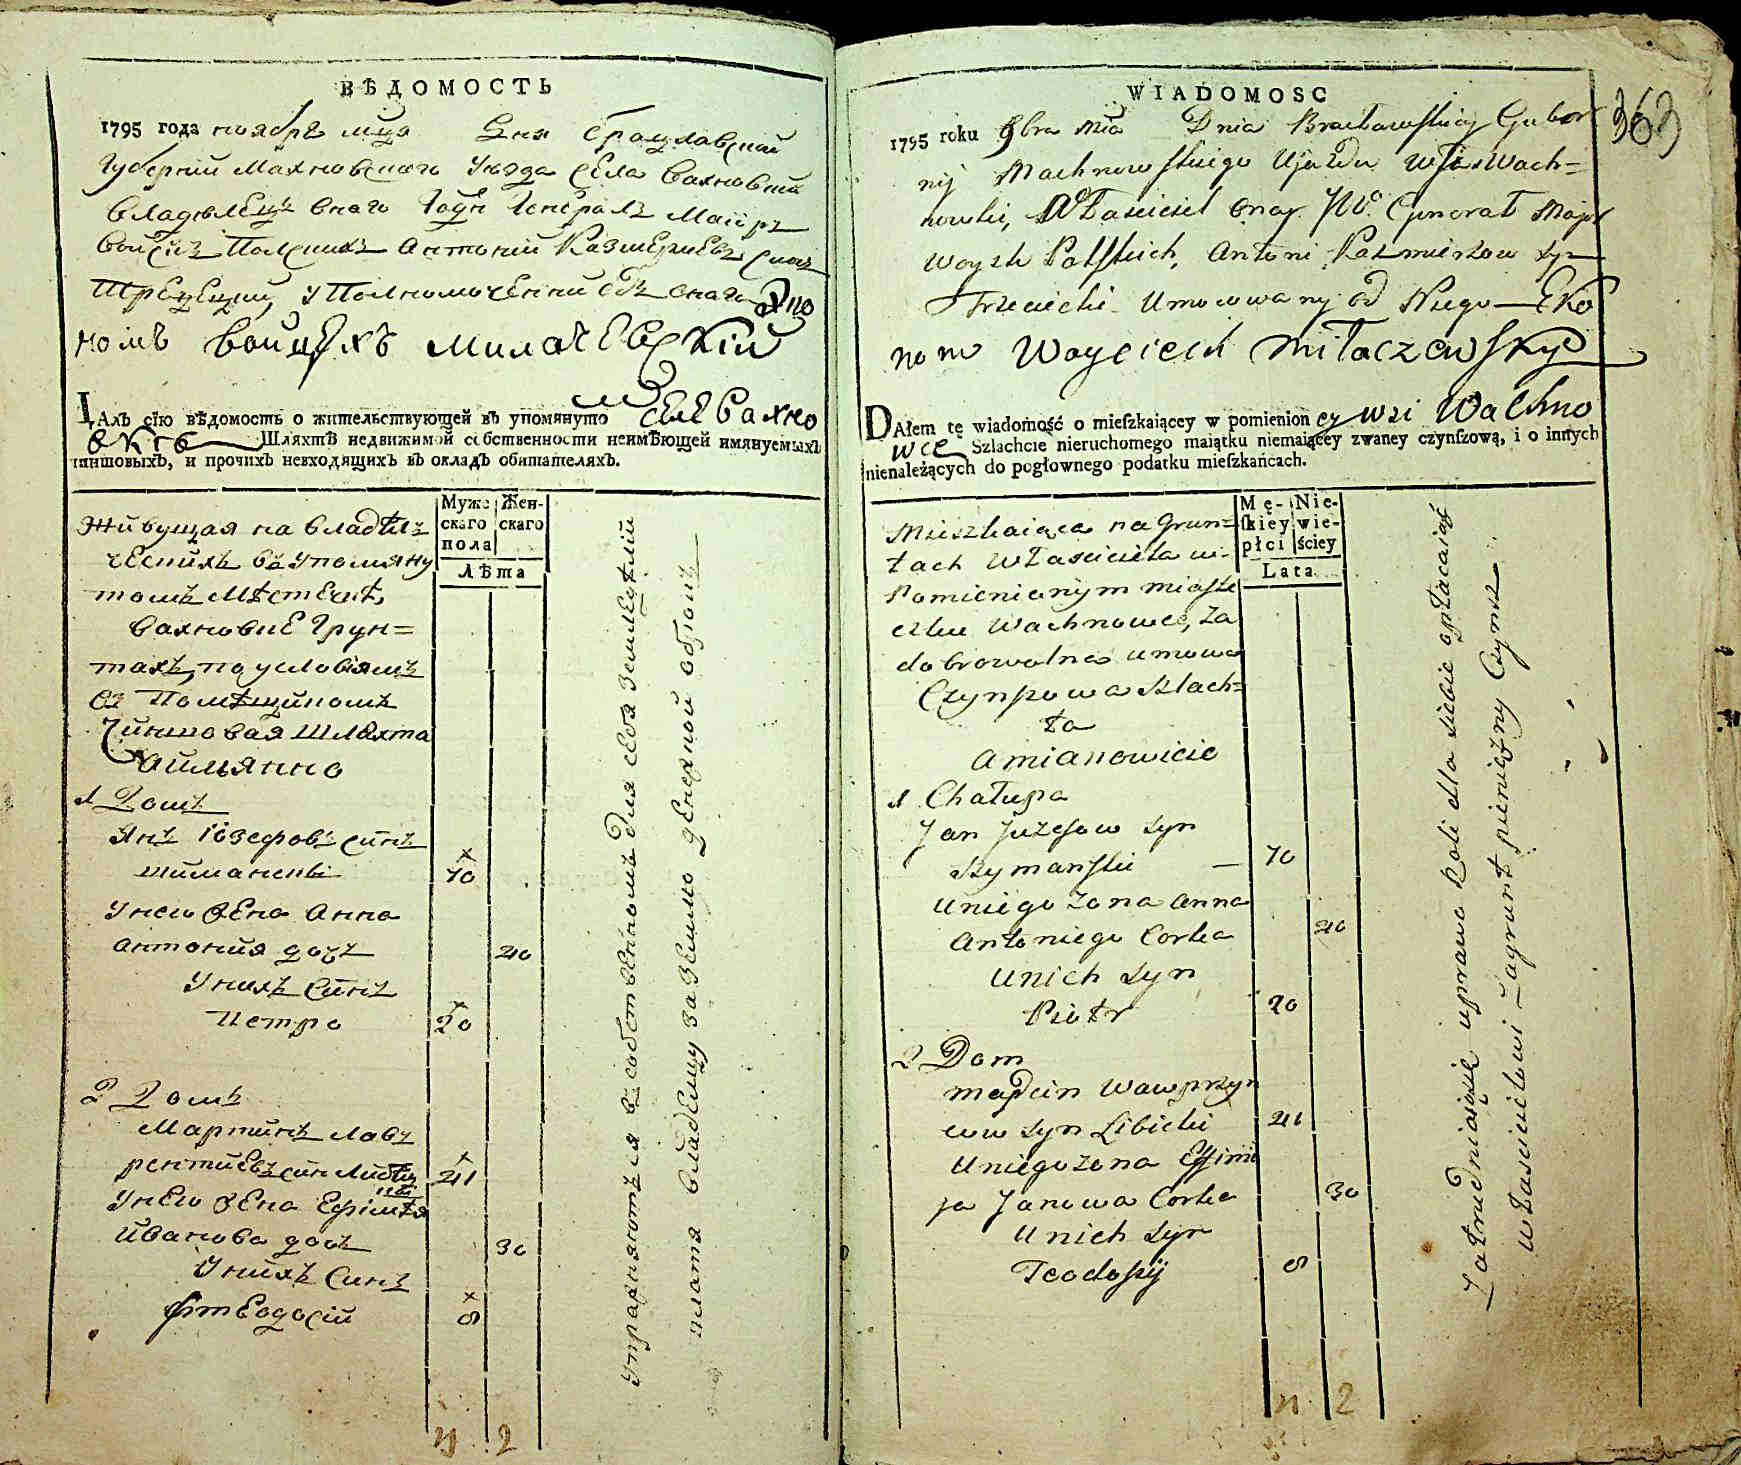 ВѢДОМОСТЬ
1795 года ноябре мца Дня Брацлавской
Губернии Махновского Уезда села Вахновки
Владелецъ онаго Генералъ Маиоръ
Войскъ Полскихъ Антоний Казимериевъ сынъ
Трецецкий, уполномоченний отъ онаго Эко
номъ Войцехъ Милачевский
ДАлъ сїю вѣдомость о жительствующей въ упомянуто мъ селе Вахно
вке Шляхтѣ недвижимой собственности неимѣющей имянуемыхъ
чиншовыхъ, и прочихъ невходящихъ въ окладъ обитателяхъ.
Муже- Жен-
скаго скаго
пола
Лѣта
Живущая на владѣлъ
ческихъ въ упомяну
томъ мѣстечкѣ
Вахновке грун=
тахъ, по условіямъ
съ помѣщикомъ
Чиншовая шляхта
а имянно
1 Домъ
Янъ Іозефовъ синъ
Шиманский 70
У него жена Анна
Антония дочь 40
У нихъ синъ
Петро 20
2 Домъ
Мартинъ Лавъ
рентиевъ син Либиц
кий 41
У него жена Ефимия
Иванова дочь 30
У нихъ синъ
Феодосий 8
Упражняютъся въ собственномъ для себя земледелии
плата владелцу за землю денежной оброкъ
4 2
WIADOMOSC
363
1795 roku 9bra Mca Dnia Bracławskiey Guber
nij Machnowskiego Ujazdu Wsi Wach=
nowki, Właściciel onej JW. Generał Major
Woysk Polskich, Antoni Kazmirzow syn
Trzeciecki Umocowany od Niego Eko
nom Woyciech Miłaczewsky
DAłem tę wiadomość o mieſzkaiącey w pomienion ey wsi Wachno
wce Szlachcie nieruchomego maiątku niemaiącey zwaney czynſzową, i o innych
nienależących do pogłownego podatku mieſzkańcach.
Mę- Nie-
ſkiey wie-
płci ściey
Lata
Mieszkaiąca na Grun=
tach Właściciela w
Pomienionym miaste
czku Wachnowce, za
dobrowolno umowo
Czynszowa Szlach=
ta
a mianowicie
1 Chałupa
Jan Juzefow syn
Szymanski — 70
U niego zona Anna
Antoniego Corka 40
U nich syn
Piotr 20
2 Dom
Marcin Wawrzyn
cow syn Libicki 41
U niego zona Effimi
ja Janowa Corka 30
U nich syn
Teodosij 8
Zatrudniaią się uprawą Roli dla siebie opłacaiąc
Włascicielowi za grunt pieniężny Czynsz
4 2